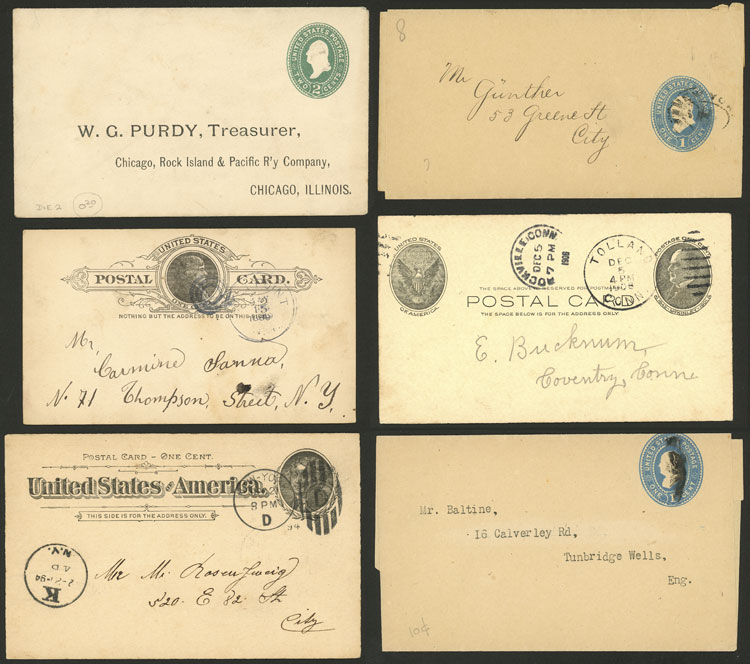 UNITED STATES POSTAGE
TWO CENTS
2
W. G. PURDY, Treasurer,
Chicago, Rock Island & Pacific R'y Company,
CHICAGO, ILLINOIS.
DIE 2
030
8
UNITED STATES
ONE CENT
1
Mr
Günther
53 Greene St
City
7
UNITED STATES
POSTAL CARD.
ONE CENT
NOTHING BUT THE ADDRESS TO BE ON THIS
Mr,
Carmine Sanna,
No. 71 Thompson, Street, N. Y.
UNITED STATES
OF AMERICA
ROCKVILLE CONN
DEC 5
7 PM
1906
TOLLAND
DEC
5
4 PM
CONN.
POSTAGE ONE
THE SPACE ABOVE RESERVED FOR
POSTAL CARD
THE SPACE BELOW IS FOR THE ADDRESS ONLY
E. Bucknum,
Coventry, Conn
POSTAL CARD - ONE CENT.
United States of America.
THIS SIDE IS FOR THE ADDRESS ONLY.
8 PM
D
94
K
2-2-94
A D
N.Y.
Mr M. Rosenzweig
520 E 82 St
City
ONE CENT
Mr. Baltine,
16 Calverley Rd,
Tunbridge Wells,
Eng.